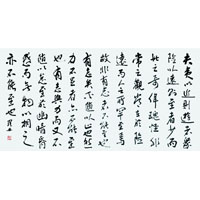 夫夷以近则游者众
险以远则至者少而
世之奇伟瑰怪非
常之观常在于险
远而人之所罕至焉
故非有志者不能至也
有志矣不随以止也然
力不足者亦不能至
也有志与力而又不
随以怠至于幽暗昏
惑而无物以相之
亦不能至也